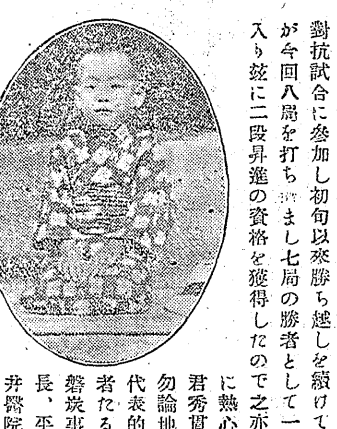 對抗試合に參加し初旬以來勝ち越しを續けて
が今回八局を打ちまし七局の勝者として一
入り玆に二段昇進の資格を獲得したので之亦
に熱心
君秀
勿論地
代表的
者たる
磐炭事
長、平
井醫院